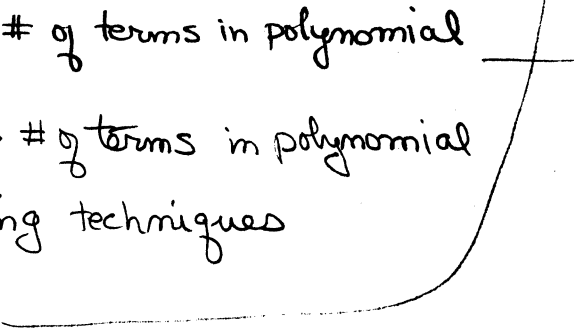 # of terms in polynomial
# of terms in polynomial
ng techniques